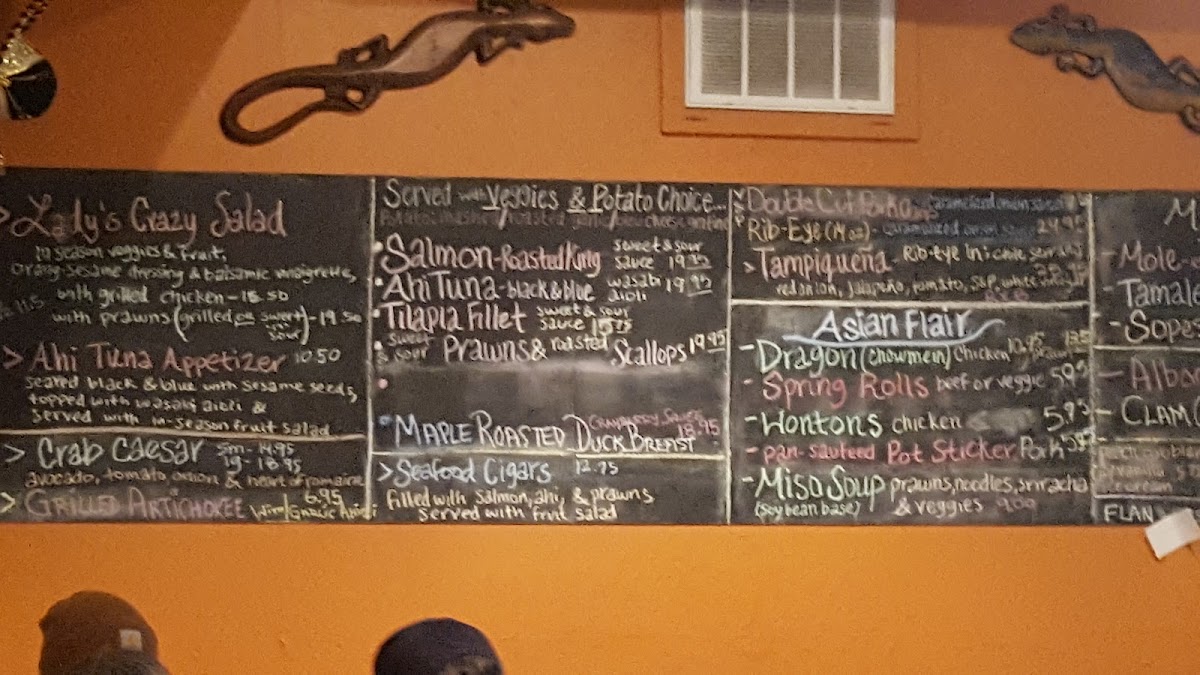 > Lady's Crazy Salad
in season veggies & fruit,
orang-sesame dressing & balsamic vinaigrette,
with grilled chicken - 18.50
with prawns (grilled or sweet & sour) - 19.50
> Ahi Tuna Appetizer 10.50
seared black & blue with sesame seeds,
topped with wasabi aioli &
served with in-season fruit salad
> Crab Caesar sm - 14.95
lg - 18.95
avocado, tomato, onion & heart of romaine
> Grilled Artichokee 6.95
w/ Garlic Aioli
Served with Veggies & Potato Choice...
• Salmon - Roasted King sweet & sour sauce 19.95
• Ahi Tuna - black & blue wasabi aioli 19.95
• Tilapia Fillet sweet & sour sauce 15.75
• sweet & sour Prawns & roasted Scallops 19.95
Maple Roasted Duck Breast Cranberry Sauce 18.95
> Seafood Cigars 12.75
filled with salmon, ahi, & prawns
served with fruit salad
Double Cut Pork caramelized onion
Rib-Eye (14 oz) - caramelized onion 24.95
> Tampiqueña Rib-eye
red onion, jalapeño, tomato, white
Asian Flair
- Dragon (chowmein) Chicken 10.95
- Spring Rolls beef or veggie 5.95
- Wontons chicken 5.95
- pan-sauteed Pot Sticker Pork
- Miso Soup prawns, noodles, sriracha
(soybean base) & veggies 9.00
- Mole
- Tamale
- Sope
- Alb
- Clam
ice cream
Flan